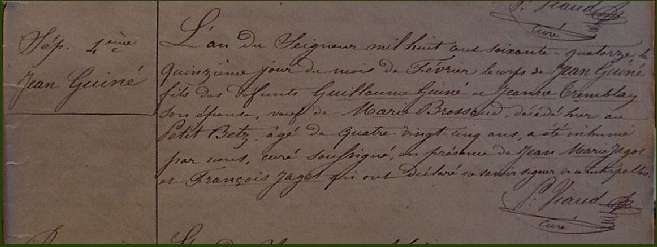 P. Viaud
curé
Sép. 4ème
Jean Guiné
L'an du Seigneur mil huit cent soixante-quatorze le
quinzième jour du mois de Février le corps de Jean Guiné
fils des defunts Guillaume Guiné et Jeanne Tremblay
son épouse, veuf de Marie Brossaud, décédé hier au
Petit Betz, âgé de quatre vingt cinq ans, a été inhumé
par nous, curé soussigné, en présence de Jean Marie Jagot
et François Jagot qui ont déclaré ne savoir signer de ce interpellés.
P. Viaud
curé